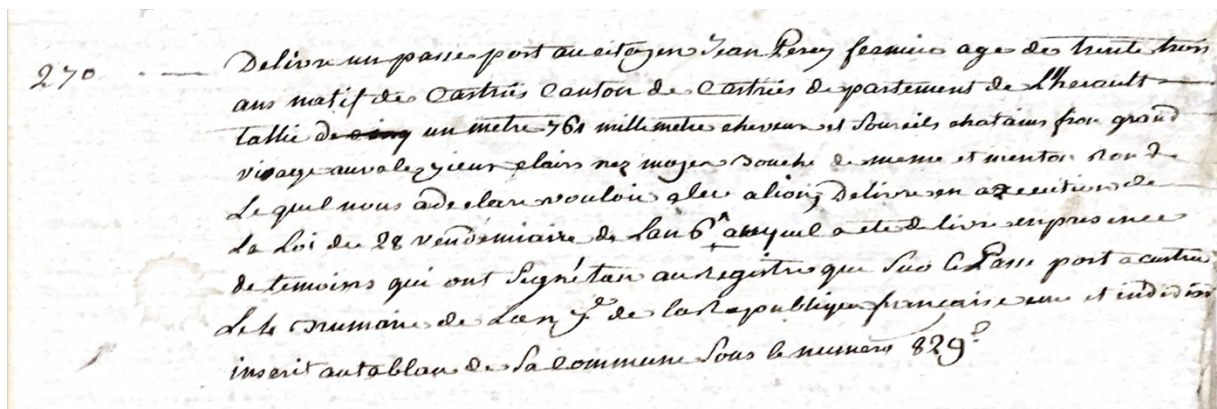 270 . — Delivre un passe port au citoyen Jean Perey fermier age de trente trois
ans natif de Castries Canton de Castries departement de Lherault
tallie de cinq un metre 761 millimetre cheveux et Soursils chatains fron grand
visage auvale yieux clairs nez moyen bouche de meme et menton rond
Le quel nous a declare vouloir aller a lion Delivre en axecution de
La Loi du 28 vendemiaire de Lan 6e auquel a ete delivre en presence
de temoins qui ont Segné tan au registre que Sur le Passe port a castrie
Le 4 brumaire de Lan 7e de la Republique francaise une et indivisi
inscrit autablau de Sa commune Sous le numero 829